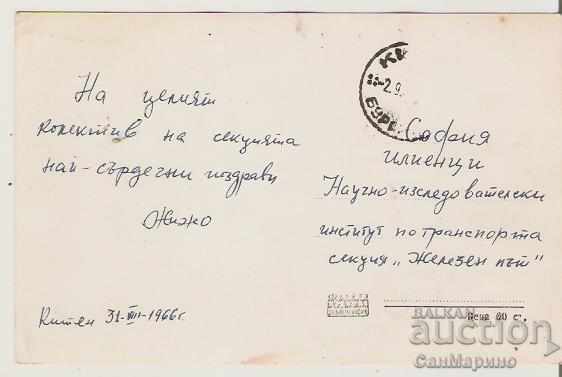 На целият
колектив на секцията
най-сърдечни поздрави
Жижо
Китен 31-VIII-1966г.
КИ
-2.9.
БУРГ
София
илиенци
Научно-изследователски
институт по транспорта
секция "Железен път"
Цена 20 ст.
BALKAN
auction
СанМарино